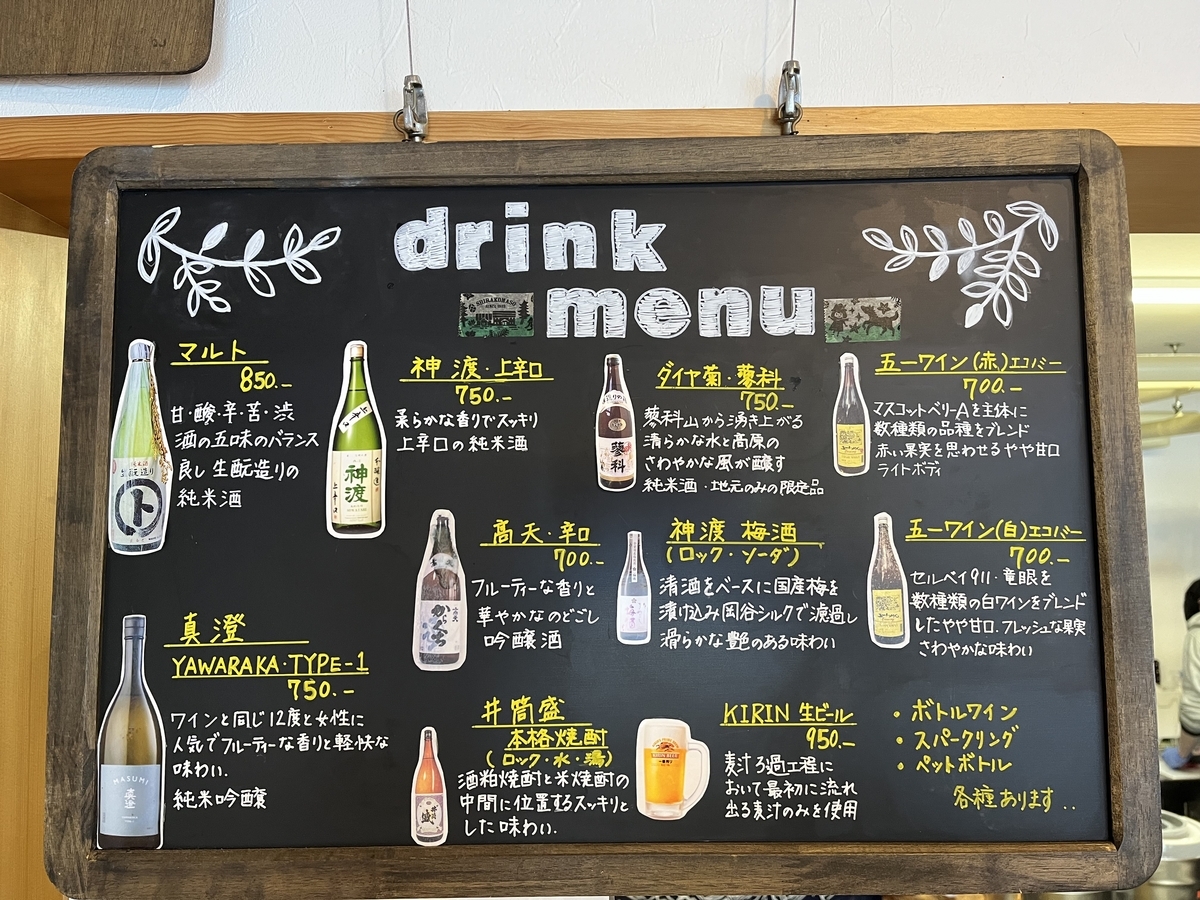 drink
menu
SHIRAKOMASO
マルト
850.-
甘・酸・辛・苦・渋
酒の五味のバランス
良し 生酛造りの
純米酒
神渡・上辛口
750.-
柔らかな香りでスッキリ
上辛口の純米酒
神渡
ダイヤ菊・蓼科
750.-
蓼科山から湧き上がる
清らかな水と高原の
さわやかな風が醸す
純米酒・地元のみの限定品
蓼科
五一ワイン(赤)エコノミー
700.-
マスコットベリーAを主体に
数種類の品種をブレンド
赤い果実を思わせるやや甘口
ライトボディ
高天・辛口
700.-
フルーティーな香りと
華やかなのどごし
吟醸酒
からくち
神渡 梅酒
(ロック・ソーダ)
清酒をベースに国産梅を
漬け込み岡谷シルクで濾過し
滑らかな艶のある味わい
五一ワイン(白)エコノミー
700.-
セルベイ911・竜眼を
数種類の白ワインをブレンド
したやや甘口.フレッシュな果実
さわやかな味わい
真澄
YAWARAKA・TYPE-1
750.-
ワインと同じ12度と女性に
人気でフルーティーな香りと軽快な
味わい.
純米吟醸
MASUMI
真澄
井筒盛
本格焼酎
(ロック・水・湯)
酒粕焼酎と米焼酎の
中間に位置するスッキリと
した味わい.
KIRIN 生ビール
950.-
麦汁ろ過工程に
おいて最初に流れ
出る麦汁のみを使用
・ボトルワイン
・スパークリング
・ペットボトル
各種あります..